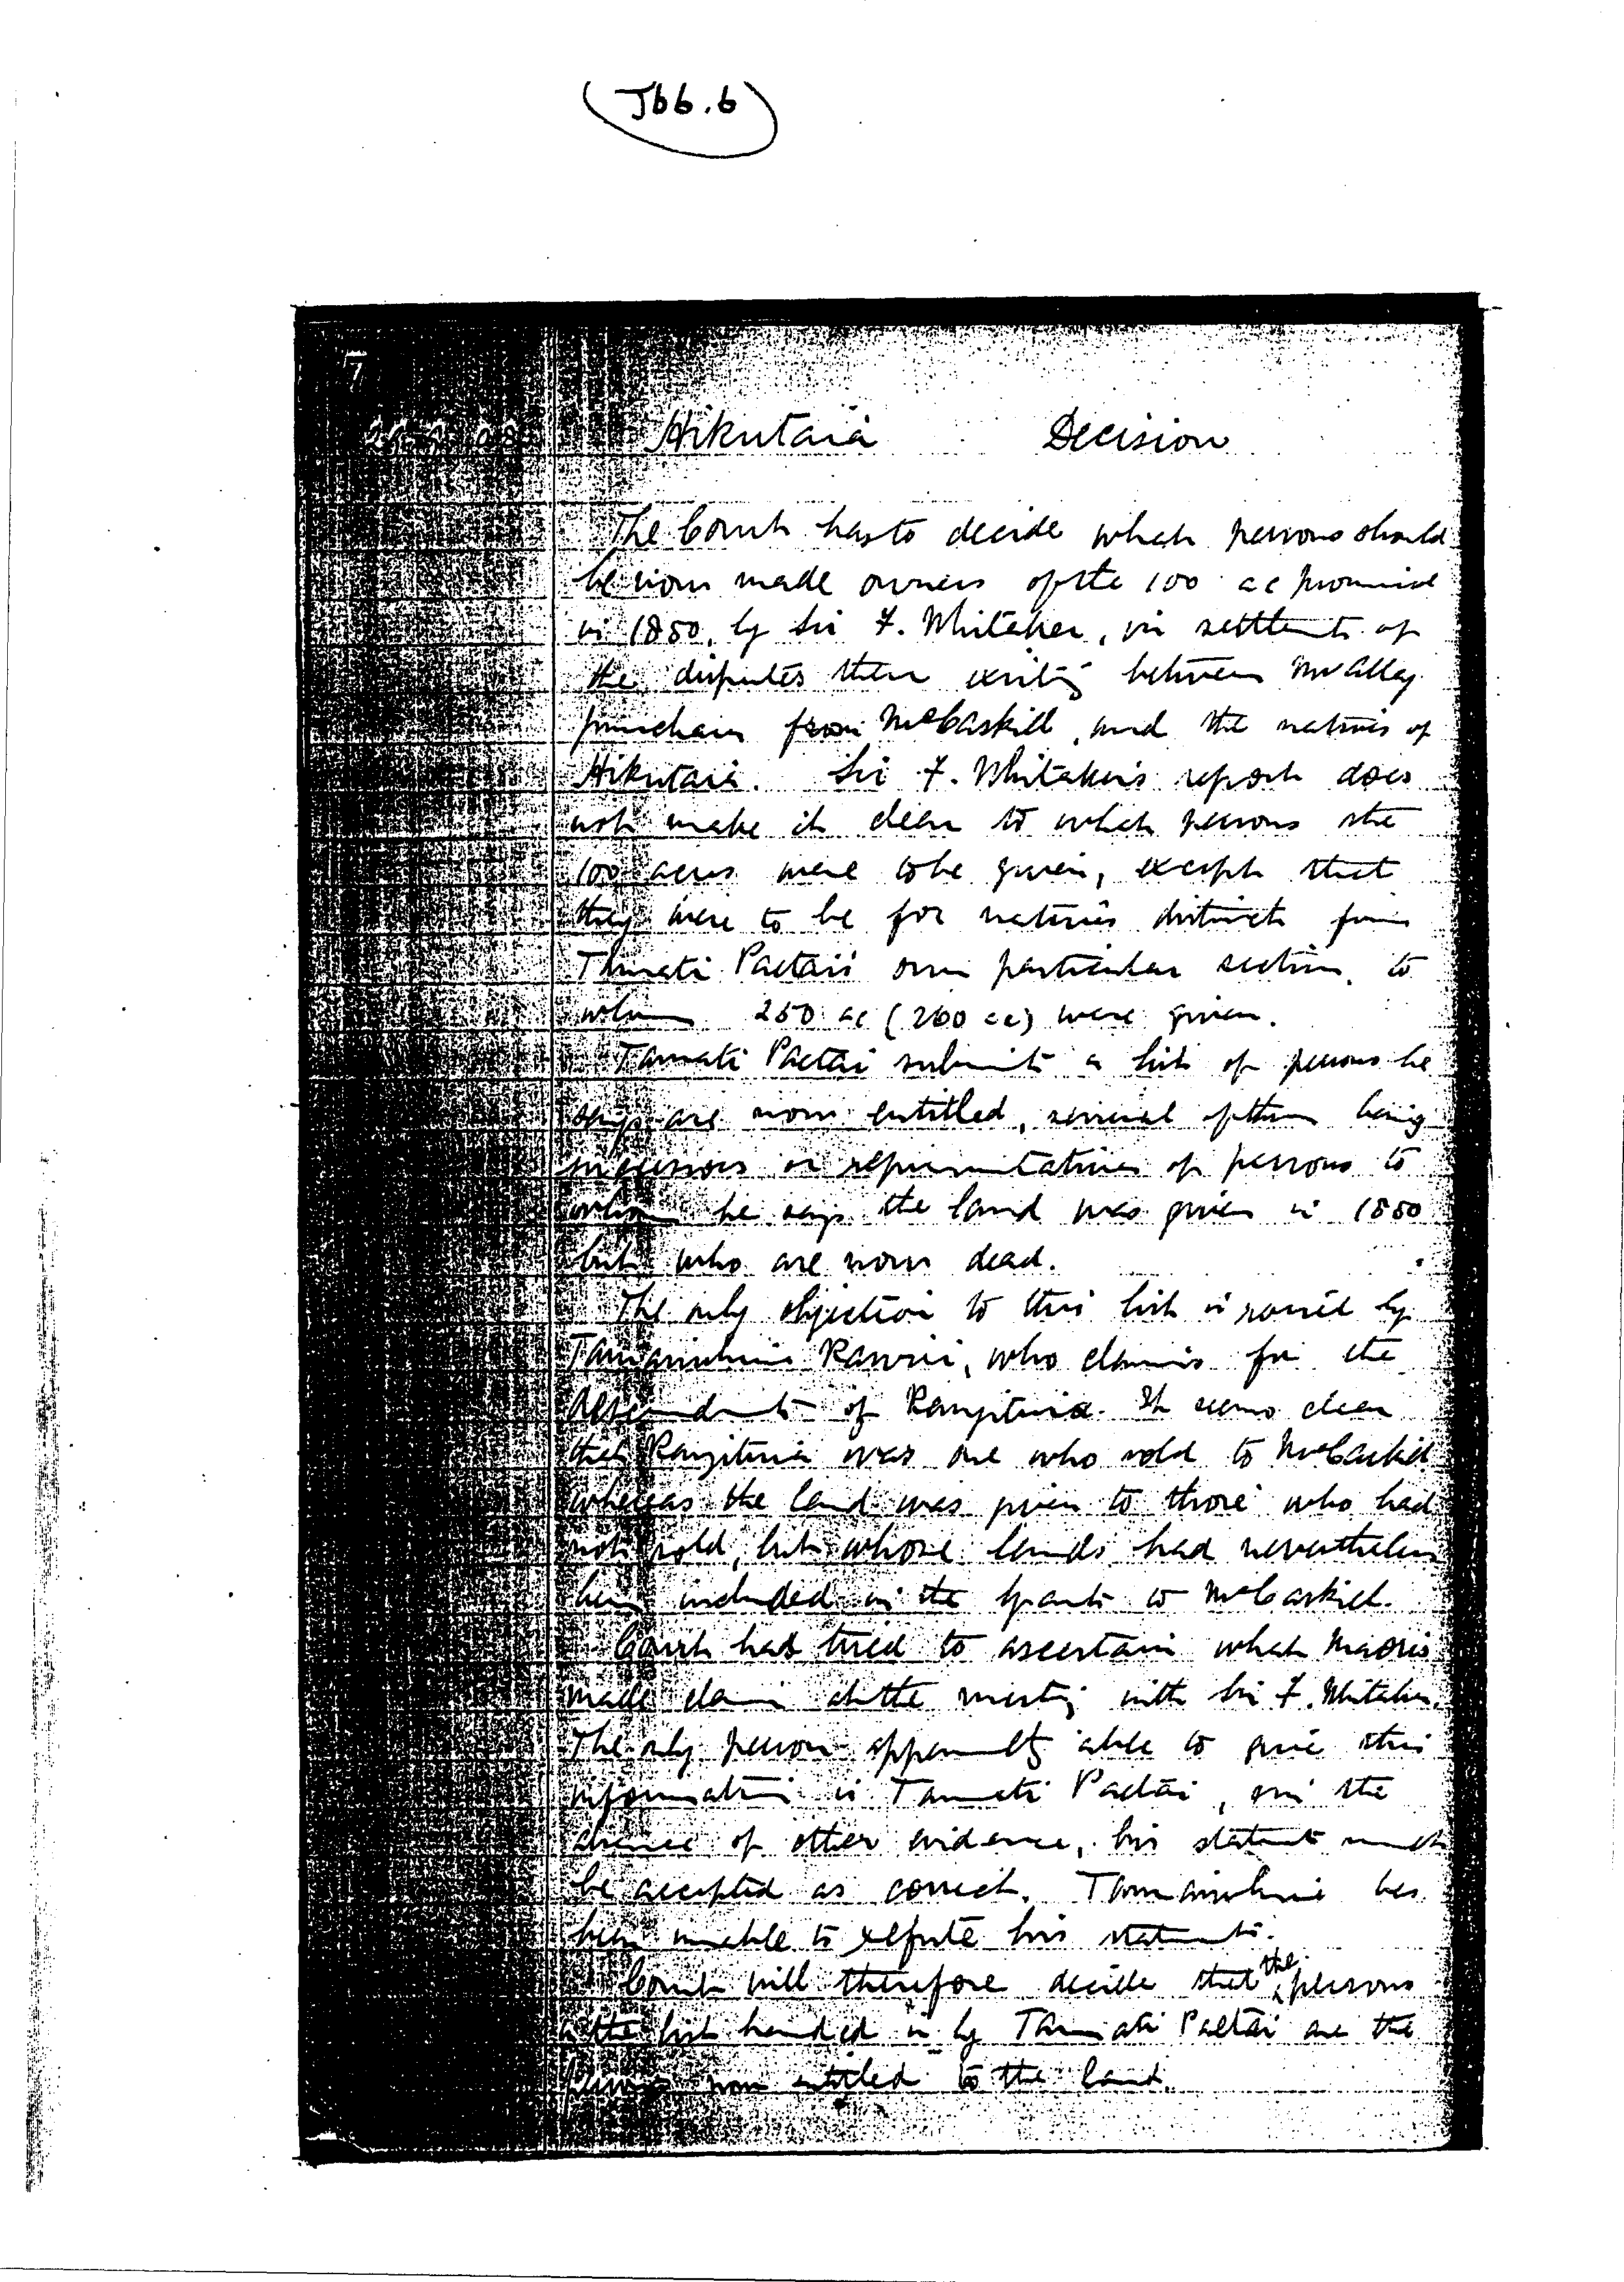 J66.6
7
Hikutaia Decision
The Court has to decide which persons should
be now made owners of the 100 ac promised
in 1880, by Sir F. Whitaker, in settlemt of
the disputes then existing between Mr Alley
purchaser from McCaskill, and the natives of
Hikutaia. Sir F. Whitaker's report does
not make it clear to which persons the
100 acres were to be given, except that
they were to be for natives distinct from
Tamati Paetai's own particular section, to
whom 250 ac (260 ac) were given.
Tamati Paetai submits a list of persons he
says are now entitled, several of them being
successors or representatives of persons to
whom he says the land was given in 1880
but who are now dead.
The only objection to this list is raised by
Rawiri, who claims for the
descendants of Rangituia. It seems clear
that Rangituia was one who sold to McCaskill
whereas the land was given to those who had
not sold, but whose lands had nevertheless
been included in the Grants to McCaskill.
Court has tried to ascertain what Maoris
made claim at the meeting with Sir F. Whitaker.
The only person apparently able to give this
information is Tamati Paetai, in the
absence of other evidence, his statemt must
be accepted as correct. has
been unable to refute his statemts.
Court will therefore decide that the persons
in the list handed in by Tamati Paetai are the
persons now entitled to the land.